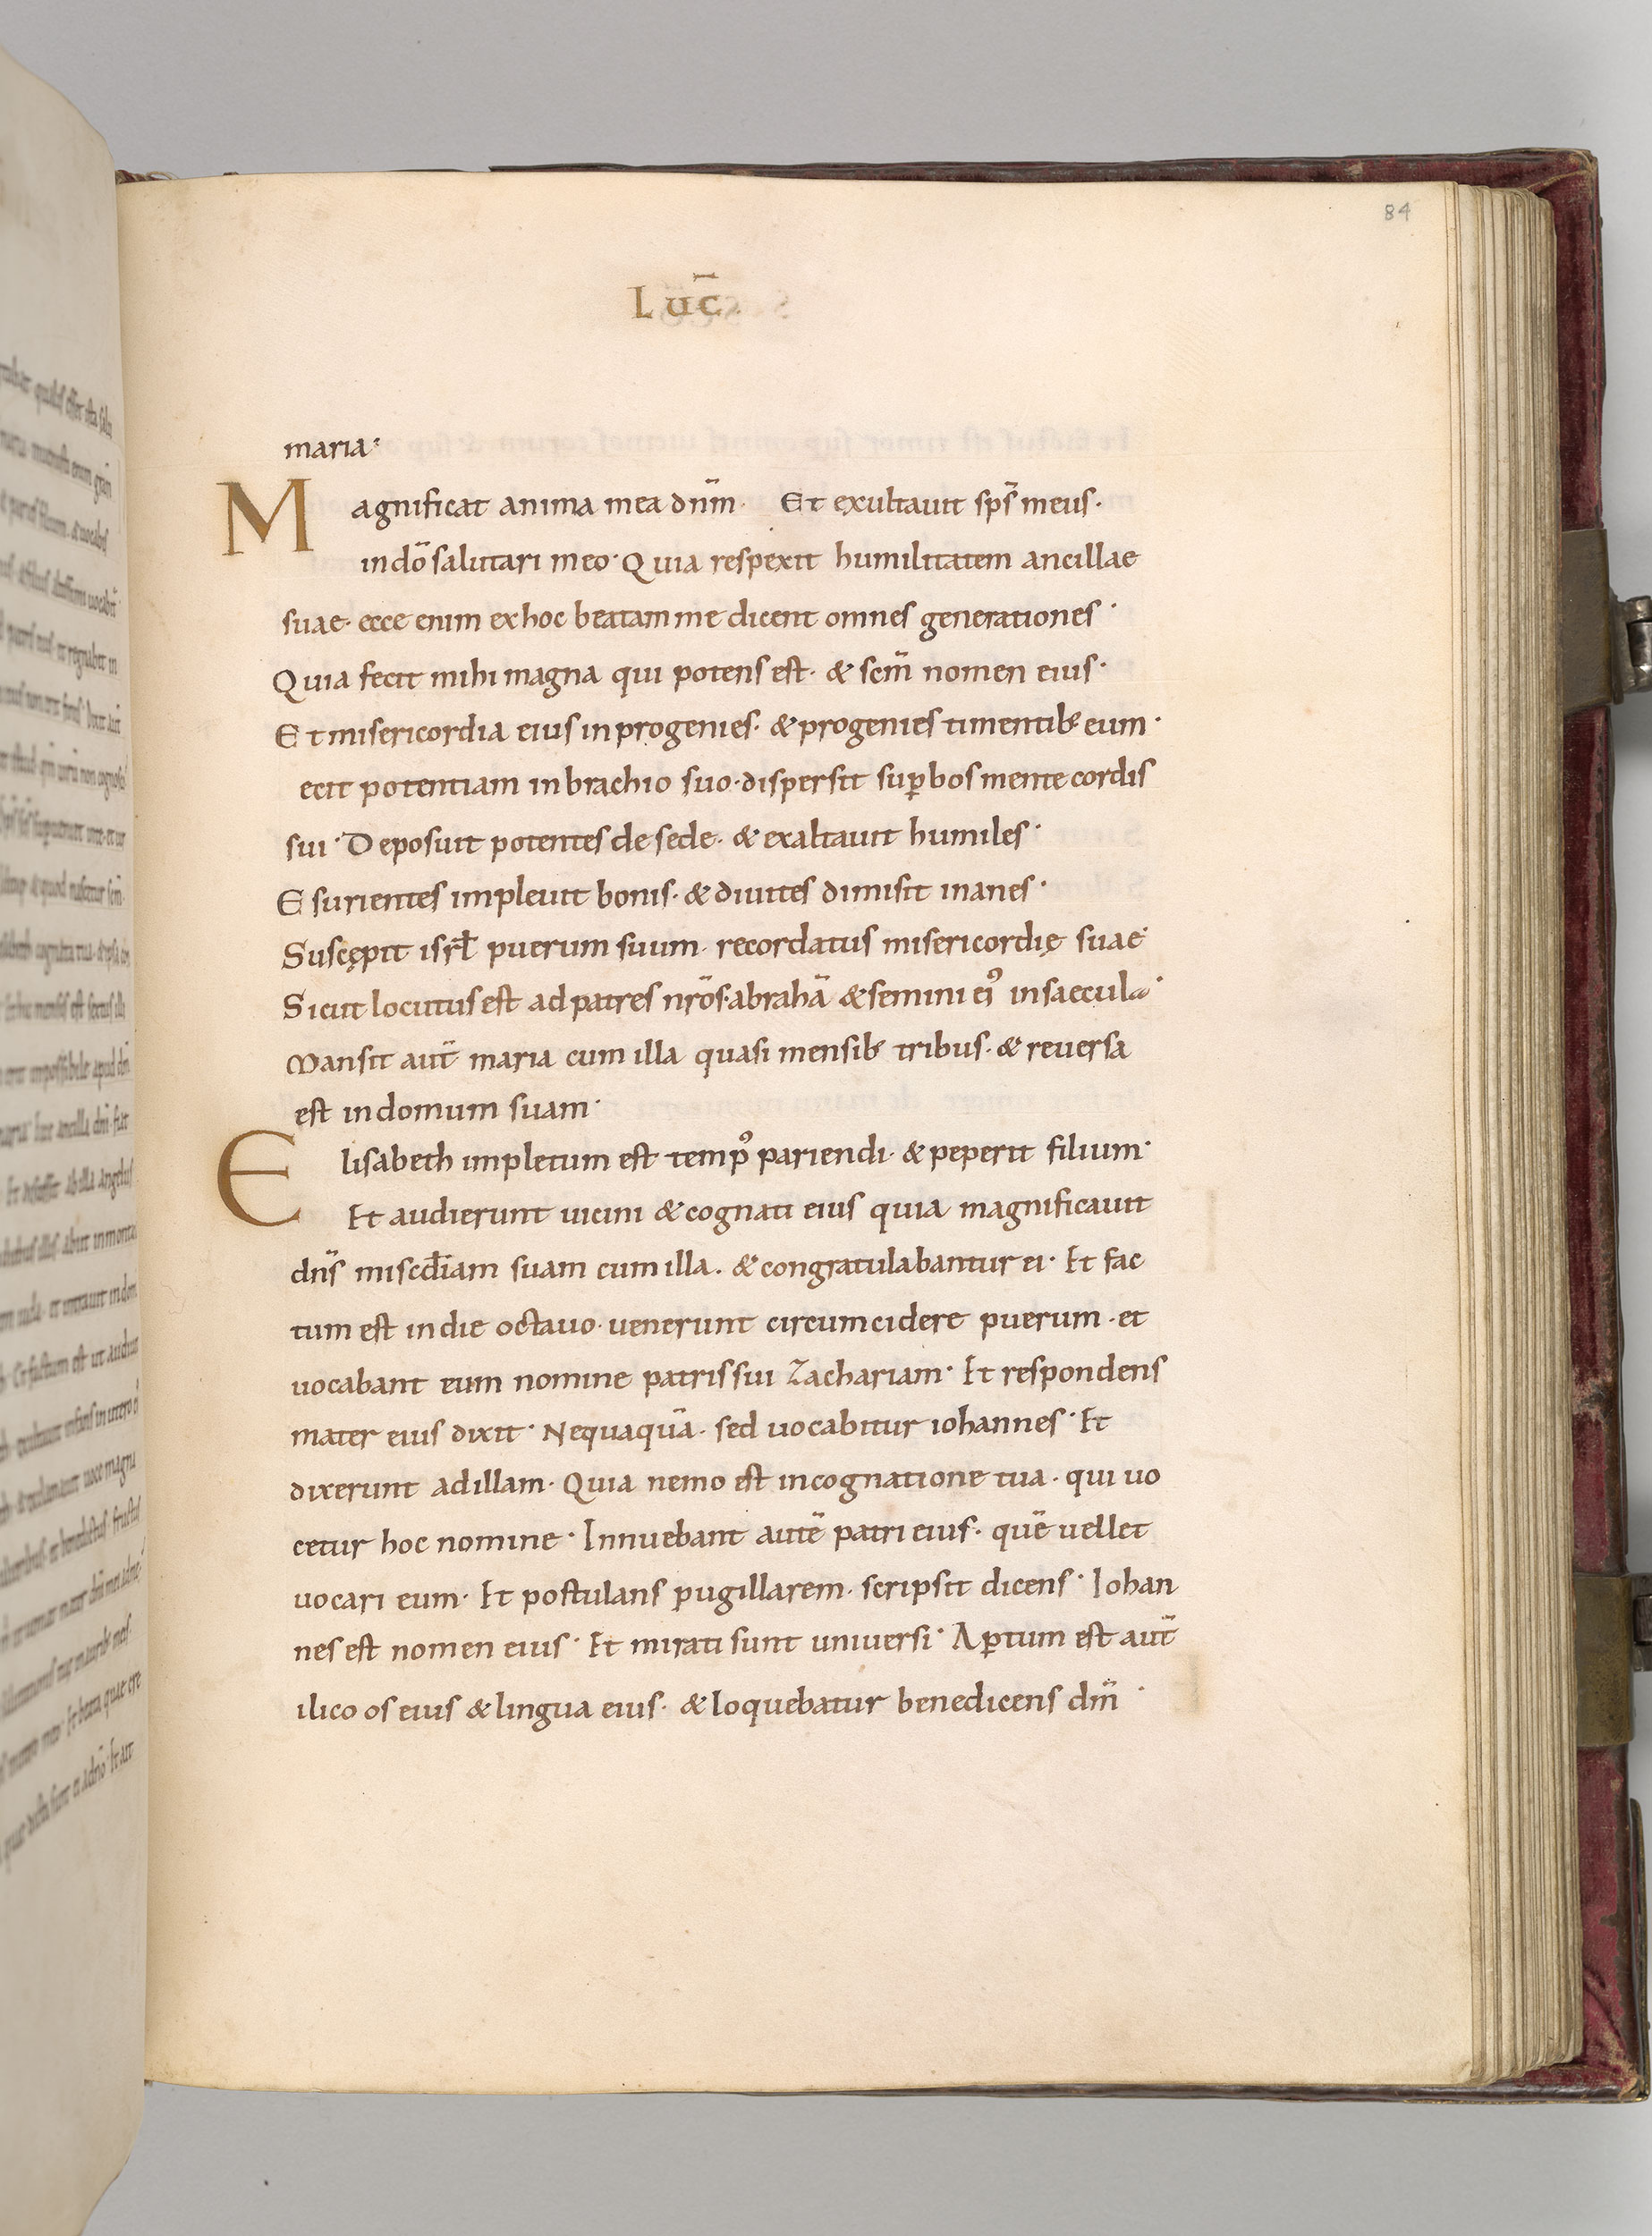 84
Luc̄
maria·
Magnificat anima mea dnm̄· Et exultauit sps̄ meus·
in dō salutari meo· Quia respexit humilitatem ancillae
suae· ecce enim ex hoc beatam me dicent omnes generationes·
Quia fecit mihi magna qui potens est· & scm̄ nomen eius·
Et misericordia eius in progenies· & progenies timentib; eum·
ecit potentiam in brachio suo· dispersit sup̄bos mente cordis
sui· Deposuit potentes de sede· & exaltauit humiles·
Esurientes impleuit bonis· & diuites dimisit inanes·
Suscępit isrł puerum suum· recordatus misericordię suae·
Sicut locutus est ad patres nr̄os· abrahā & semini eiꝰ in saecula·
Mansit aut̄ maria cum illa quasi mensib; tribus· & reuersa
est in domum suam·
Elisabeth impletum est tempꝰ pariendi· & peperit filium·
Et audierunt uicini & cognati eius quia magnificauit
dn̄s miscđiam suam cum illa· & congratulabantur ei· Et fac
tum est in die octauo· uenerunt circumcidere puerum· et
uocabant eum nomine patris sui Zachariam· Et respondens
mater eius dixit· Nequaquā· sed uocabitur iohannes· Et
dixerunt ad illam· Quia nemo est in cognatione tua· qui uo
cetur hoc nomine· Innuebant autē patri eius· quē uellet
uocari eum· Et postulans pugillarem· scripsit dicens· Iohan
nes est nomen eius· Et mirati sunt uniuersi· Ap̄tum est aut̄
ilico os eius & lingua eius· & loquebatur benedicens dm̄·